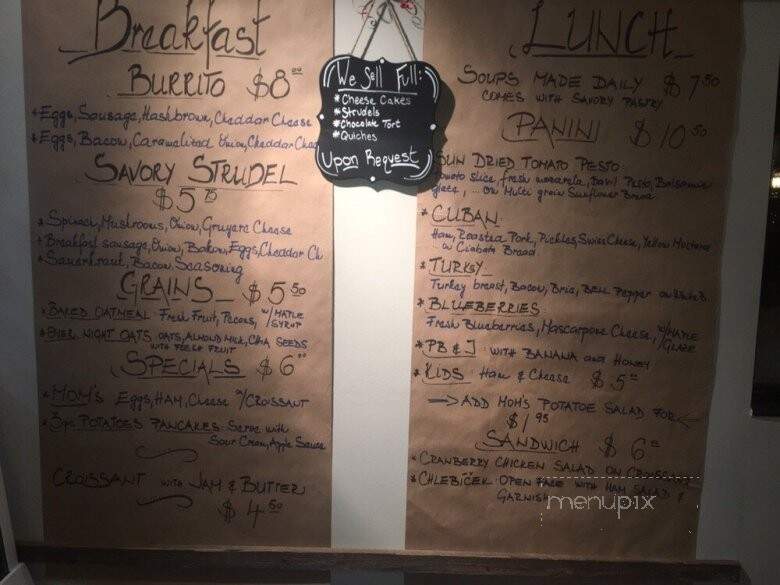 Breakfast
BURRITO $8.00
* Eggs, Sausage, Hashbrown, Cheddar Cheese
* Eggs, Bacon, Caramalized Onion, Cheddar
SAVORY STRUDEL
$5
* Spinach, Mushrooms, Onion, Gruyere Cheese
* Breakfast sausage, Onion, Bakon, Eggs, Cheddar Ch
* Sauerkraut, Bacon, Seasoning
GRAINS $5.50
* BAKED OATMEAL Fresh Fruit, Pecans, W/MAPLE SYRUP
* OVER NIGHT OATS OATS, ALMOND MILK, CHIA SEEDS
WITH FRESH FRUIT
SPECIALS $6.00
* MOM'S Eggs, HAM, Cheese W/CROISSANT
* 3pc POTATOES PANCAKES Serve with
Sour Cream, Apple Sauce
CROISSANT WITH JAM & BUTTER
$4.50
We Sell Full:
* Cheese Cakes
* Strudels
* Chocolate Tort
* Quiches
Upon Request
LUNCH
SOUPS MADE DAILY $7.50
COMES WITH SAVORY PASTRY
PANINI $10.50
SUN DRIED TOMATO PESTO
tomato slice, fresh mozarela, Basil Pesto, Balsamic
glaze, ... on Multi grain Sunflower Bread
* CUBAN
Ham, Roasted Pork, Pickles, Swiss Cheese, Yellow Mustard
... on Ciabata Bread
* TURKEY
Turkey breast, Bacon, Brie, BELL Pepper on White B.
* BLUEBERRIES
Fresh Blueberries, Mascarpone Cheese, W/MAPLE GLAZE
* PB & J WITH BANANA and HONEY
* KIDS Ham & Cheese $5.00
ADD MOM'S POTATOE SALAD FOR
$1.95
SANDWICH $6
* CRANBERRY CHICKEN SALAD ON CROISSANT
* CHLEBÍČEK OPEN FACE WITH HAM SALAD &
GARNISH
menupix